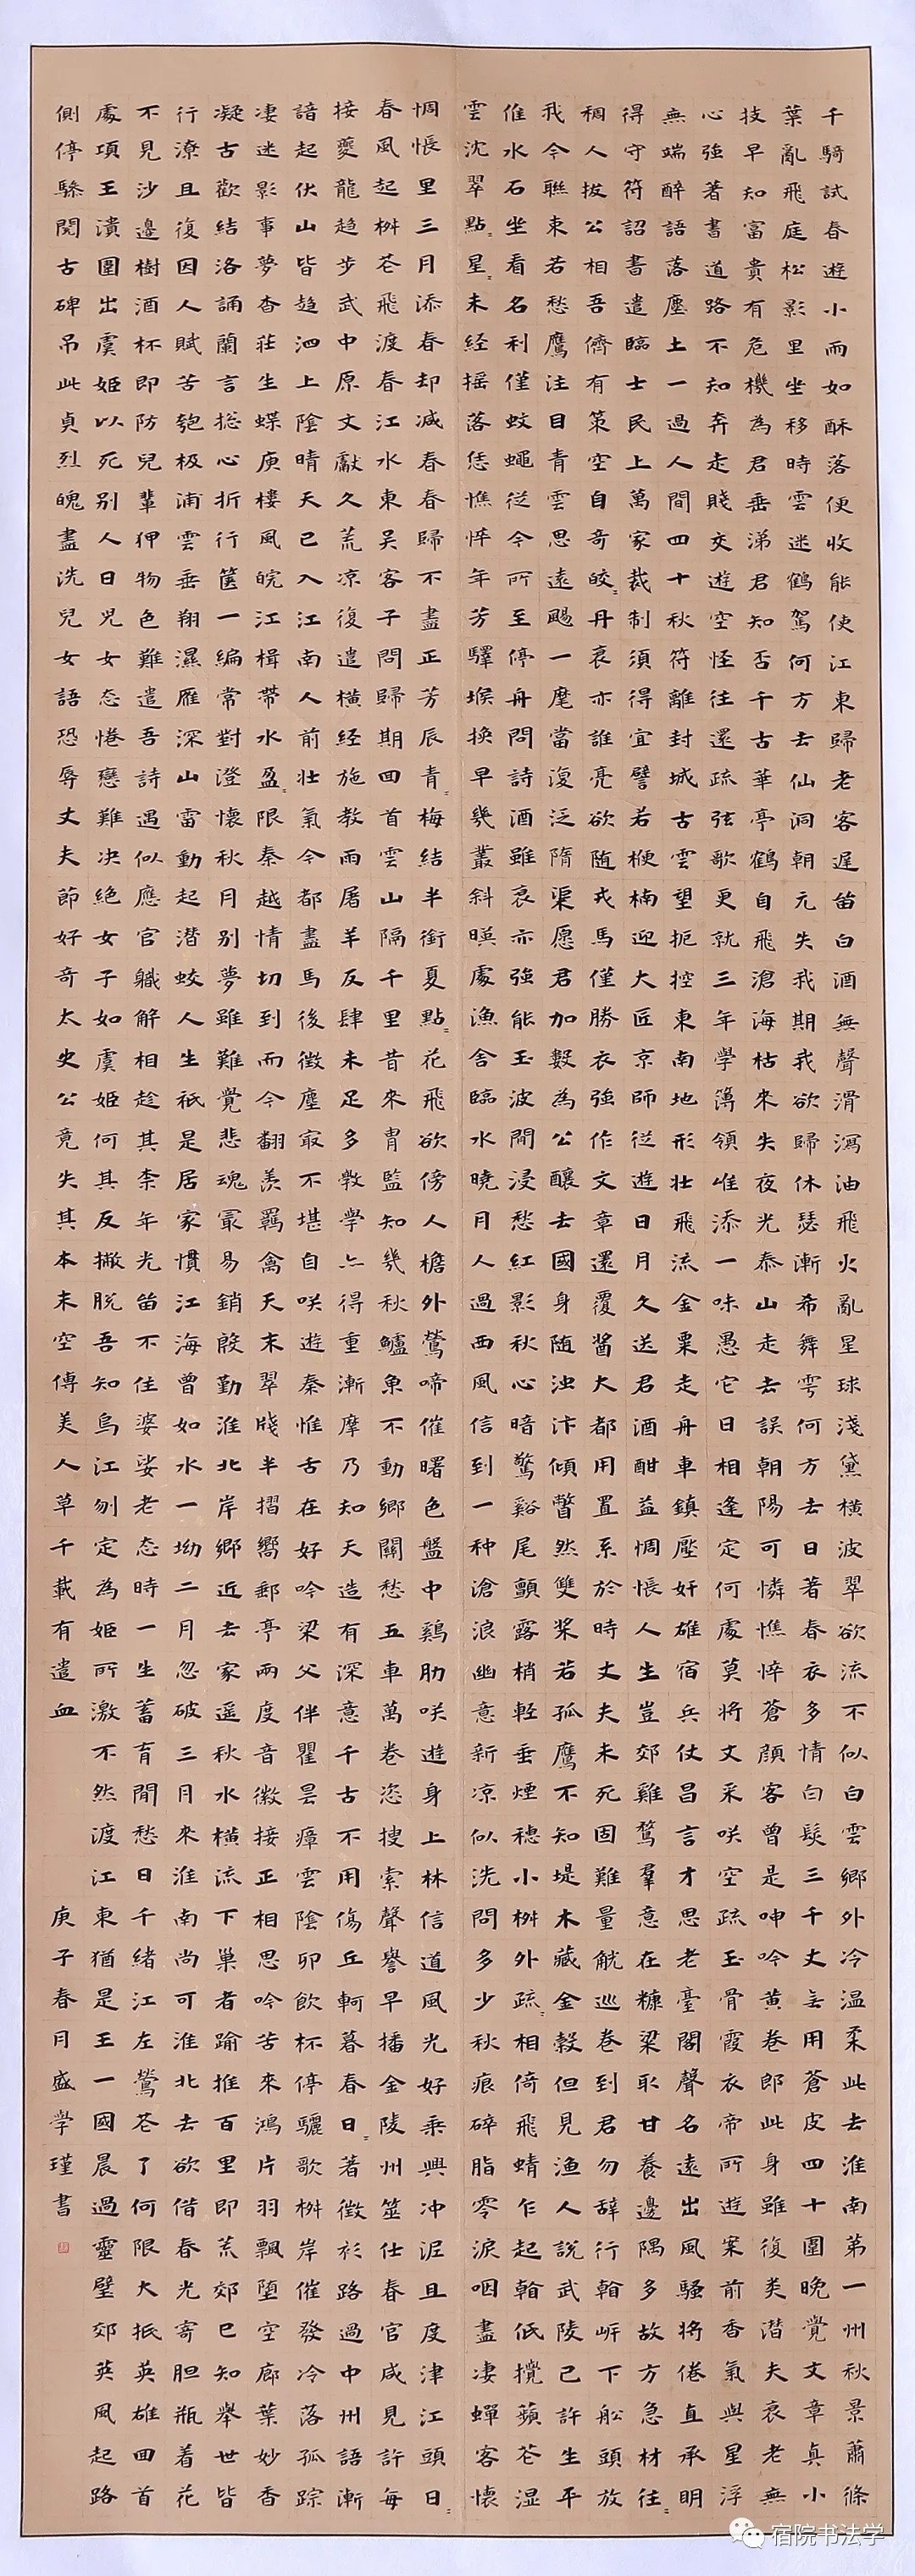 千騎試春遊小而如酥落便收能使江東歸老客遲笛白酒無聲滑瀉油飛火亂星球淺黛橫波翠欲流不似白雲鄉外冷温柔此去淮南第一州秋景蕭條
葉亂飛庭松影里坐移時雲迷鶴駕何方去仙洞朝元失我期我欲歸休瑟漸希舞雩何方去日著春衣多情白髮三千丈用蒼皮四十圍晚覺文章真小
技早知富貴有危機為君垂涕君知否千古華亭鶴自飛滄海枯來失夜光泰山走去誤朝陽可憐憔悴蒼顏客曾是呻吟黃卷郎此身雖復类潛夫衰老無
心強著書道路不知奔走賤交遊空怪往還疏弦歌更就三年學簿領唯添一味愚它日相逢定何處莫將文采咲空疏玉骨霞衣帝所遊案前香氣與星浮
無端醉語落塵土一過人間四十秋符離封城古雲望扼控東南地形壯飛流金粟走舟車鎮壓奸雄宿兵仗昌言才思老臺閣聲名遠出風騷將倦直承明
得守符詔書遣臨士民上萬家裁制須得宜譬若楩楠迎大匠京師從遊日月久送君酒酣益惆悵人生豈郊雞鶩羣意在糠梁耴甘養邊隅多故方急材往〻
稠人拔公相吾儕有策空自奇皎〻丹哀亦誰亮欲随戎馬僅勝衣強作文章還覆醬大都用置系於時丈夫未死固難量觥巡卷到君勿辞行翰岍下舩頭放
我今聯束若愁鷹注目青雲思遠颺一麾當復泛隋渠愿君加數為公釀去國身随浊汴傾瞥然雙桨若孤鷹不知堤木藏金縠但見渔人說武陵已許生平
惟水石坐看名利僅蚊蠅從今所至停舟問詩酒雖哀亦強能玉波間浸愁紅影秋心暗驚谿尾顫露梢輕垂煙穗小桝外疏〻相倚飛蜻乍起翰低攪蘋苍湿
雲沈翠點〻星〻未经摇落恁憔悴年芳驛堠換早幾叢斜暎處漁舍臨水曉月人過西風信到一种滄浪幽意新凉似洗問多少秋痕碎脂零淚咽盡凄蟬客懷
惆悵里三月添春却减春春歸不盡正芳辰青〻梅結半銜夏點〻花飛欲傍人檐外鶯啼催曙色盤中鷄肋咲遊身上林信道風光好乘興冲泥且度津江頭日〻
春風起桝苍飛渡春江水東吴客子問歸期回首雲山隔千里昔來胄監知幾秋鱸魚不動鄉關愁五車萬卷恣搜索聲譽早播金陵州筮仕春官咸見許每
接夔龍趋步武中原文獻久荒凉復遣横经施教雨屠羊反肆未足多斅學亦得重漸摩乃知天造有深意千古不用傷丘軻暮春日〻著徵衫路過中州語漸
諳起伏山皆趋泗上陰晴天已入江南人前壮氣今都盡馬後徵塵㝡不堪自咲遊秦惟舌在好吟梁父伴瞿昙瘴雲陰卯飲杯停驪歌桝岸催發冷落孤踪
凄迷影事夢杳莊生蝶庾樓風皖江楫帶水盈〻限秦越情切到而今翻羨羈禽天末翠牋半摺嚮郵亭兩度音徽接正相思吟苦來鴻片羽飄堕空廊葉妙香
凝古歡結洛誦蘭言捴心折行篋一編常對澄懷秋月別夢雖難覺悲魂冣易銷殷勤淮北岸鄉近去家遥秋水橫流下巢者踰推百里即荒郊已知舉世皆
行潦且復因人賦苦匏极浦雲垂翔濕雁深山雷動起潜蛟人生祇是居家慣江海曾如水一坳二月忽破三月來淮南尚可淮北去欲借春光寄胆瓶着花
不見沙邉樹酒杯即防兒輩狎物色難遣吾詩遇似應官軄解相趁其柰年光笛不住婆娑老态時一生蓄育閒愁日千緒江左鶯苍了何限大抵英雄回首
處項王潰圍出虞姬以死別人日児女态惓戀難决絕女子如虞姬何其反撇脱吾知烏江刎定為姬所激不然渡江東猶是王一國晨過靈壁郊英風起路
側停驂閱古碑吊此貞烈魄盡洗兒女語恐辱丈夫節好奇太史公竟失其本末空傳美人草千載有遺血
庚子春月盛學瑾書
宿院书法学